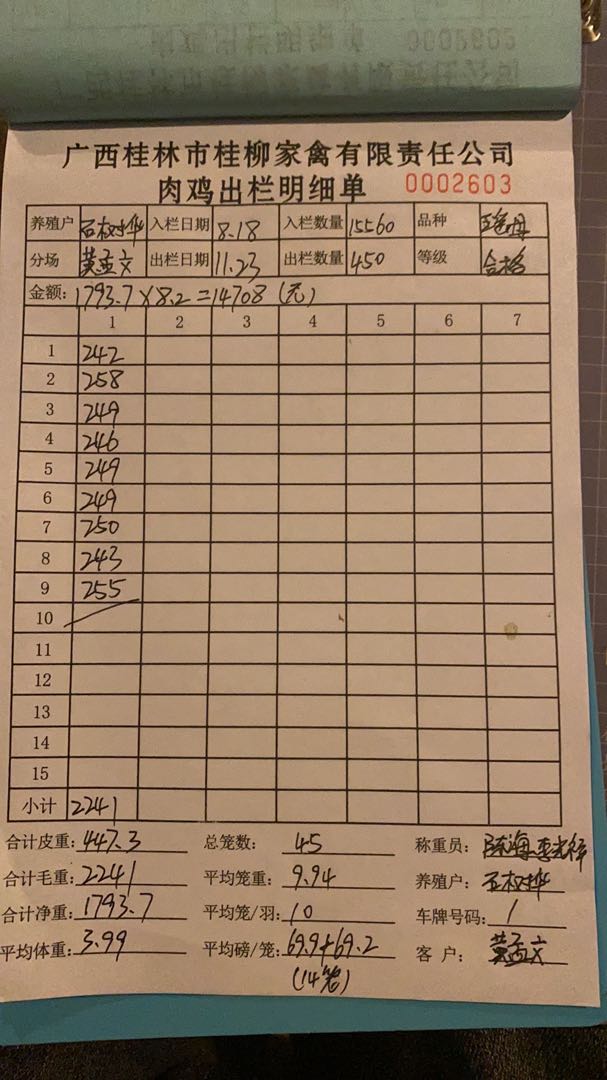 广西桂林市桂柳家禽有限责任公司
肉鸡出栏明细单 0002603
养殖户 石权桦 入栏日期 8.18 入栏数量 15560 品种
分场 黄孟文 出栏日期 11.23 出栏数量 450 等级 合格
金额: 1793.7×8.2=14708(元)
1 2 3 4 5 6 7
1 242
2 258
3 249
4 246
5 249
6 249
7 250
8 243
9 255
10
11
12
13
14
15
小计 2241
合计皮重: 447.3 总笼数: 45 称重员:
合计毛重: 2241 平均笼重: 9.94 养殖户: 石权桦
合计净重: 1793.7 平均笼/羽: 10 车牌号码: 1
平均体重: 3.99 平均磅/笼: 69.9+69.2 客 户: 黄孟文